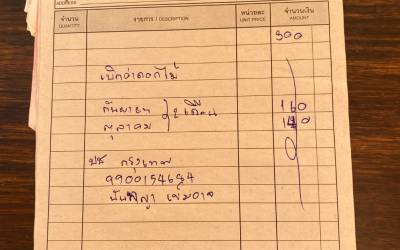 ADDRESS
จำนวน รายการ / DESCRIPTION หน่วยละ จำนวนเงิน
QUANTITY UNIT PRICE AMOUNT
300
เบิกค่าดอกไม้
กันยายน 2 เดือน 160
ตุลาคม 140
ปช กรุงเทพ